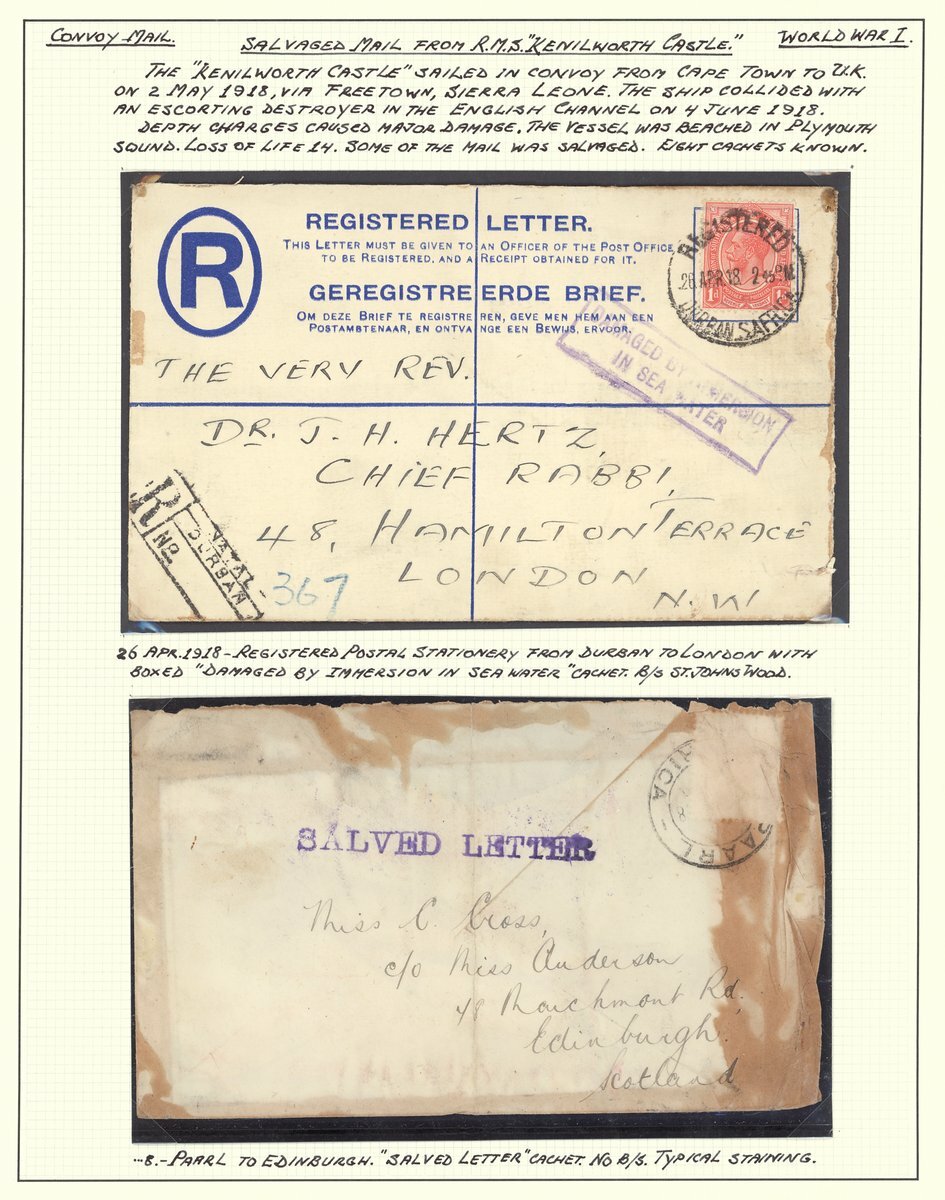 CONVOY MAIL.
SALVAGED MAIL FROM R.M.S. "KENILWORTH CASTLE."
WORLD WAR I.
THE "KENILWORTH CASTLE" SAILED IN CONVOY FROM CAPE TOWN TO U.K.
ON 2 MAY 1918, VIA FREETOWN, SIERRA LEONE. THE SHIP COLLIDED WITH
AN ESCORTING DESTROYER IN THE ENGLISH CHANNEL ON 4 JUNE 1918.
DEPTH CHARGES CAUSED MAJOR DAMAGE. THE VESSEL WAS BEACHED IN PLYMOUTH
SOUND. LOSS OF LIFE 14. SOME OF THE MAIL WAS SALVAGED. EIGHT CACHETS KNOWN.
R
REGISTERED LETTER.
THIS LETTER MUST BE GIVEN TO AN OFFICER OF THE POST OFFICE
TO BE REGISTERED, AND A RECEIPT OBTAINED FOR IT.
GEREGISTREERDE BRIEF.
OM DEZE BRIEF TE REGISTREREN, GEVE MEN HEM AAN EEN
POSTAMBTENAAR, EN ONTVANGE EEN BEWIJS, ERVOOR.
REGISTERED
26 APR 18 2 45 PM
DURBAN. S. AFRICA
1D 1D
DAMAGED BY IMMERSION
IN SEA WATER
THE VERY REV.
DR. J. H. HERTZ,
CHIEF RABBI,
48, HAMILTON TERRACE
LONDON
N.W
R
No.
NATAL
DURBAN
367
26 APR. 1918 - REGISTERED POSTAL STATIONERY FROM DURBAN TO LONDON WITH
BOXED "DAMAGED BY IMMERSION IN SEA WATER" CACHET. B/S ST. JOHNS WOOD.
PAARL
SALVED LETTER
Miss C. Cross,
c/o Miss Anderson
48 Marchmont Rd.
Edinburgh.
Scotland
...8. - PAARL TO EDINBURGH. "SALVED LETTER" CACHET. NO B/S. TYPICAL STAINING.